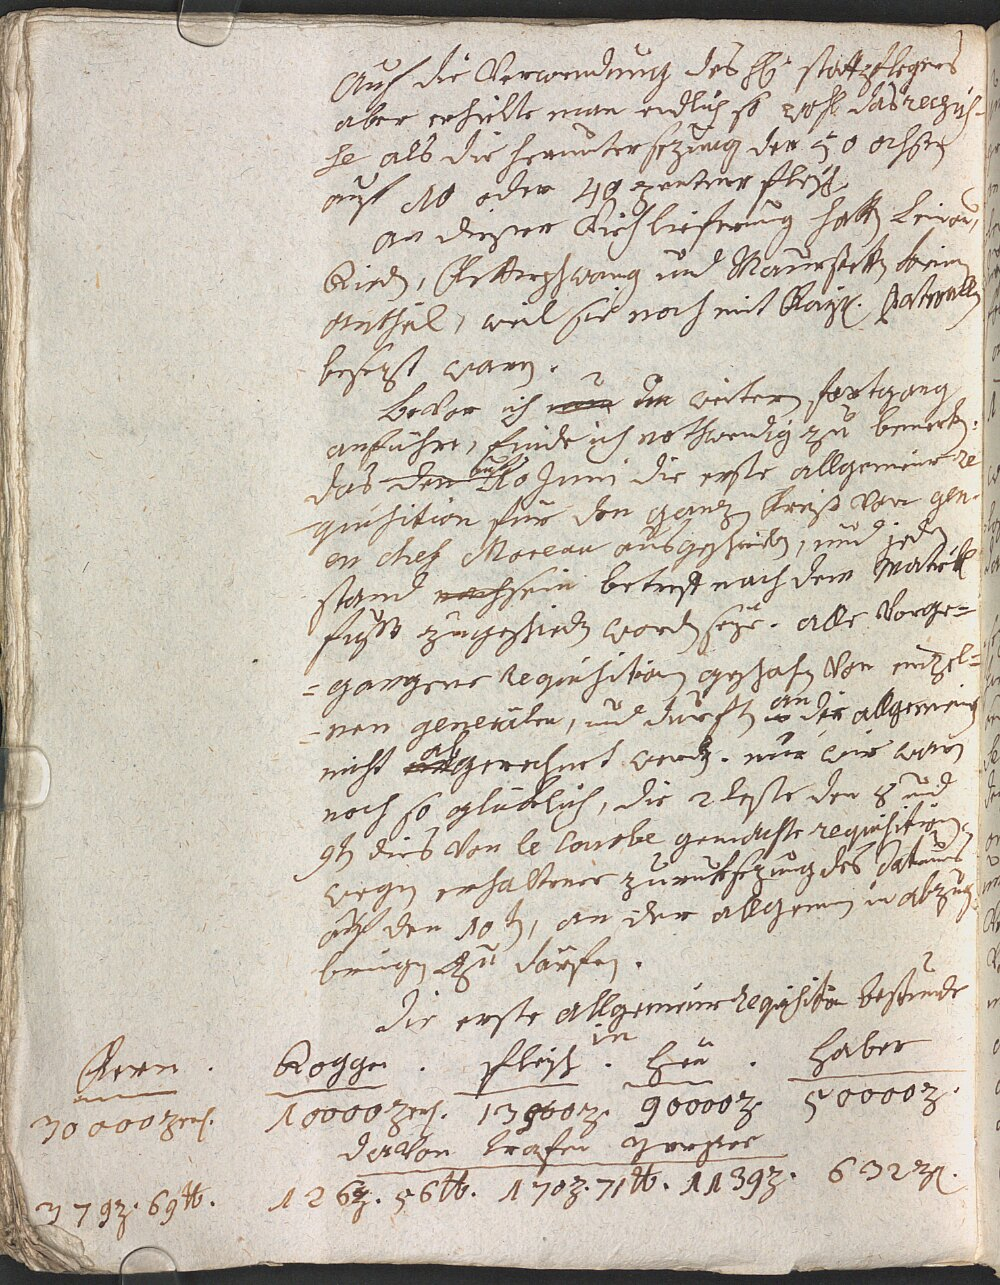 Auf die Verwendung des H. stattpflegers
aber erhielte man endlich so wohl das reqısi-
als die heruntersezung der 50 ochsen
auf 10 oder 40 zentner fleisch.
an dieser Viehlieferung hatten Leinau,
Rieden, Ketterschwang und Maurstetten keinen
Antheil, weil sie noch mit Kays. Patrouillen
besezt waren.
Bevor ich im weitern fortgang
anführe, finde ich nothwendig zu bemerken:
das den 10 Juni die erste allgemeine re
quisition für den ganzen Kreis von gen.
en chef Moreau ausgeschrieben, und jedem
stand sein betreff nach dem Matrikl
fuss zugeschieden worden seye. alle Vorge=
=gangene requisitionen geschahen von einzel=
=nen generalen, und durften an der allgemeinen
nicht abgerechnet werden. nur wir waren
noch so glücklich, die 2 leste den 8 und
9ten dies von le Courbe gemachte requisitionen
wegen erhaltener zuruksezung des Datums
auf den 10ten, an der allgemeinen in abzug
bringen zu därfen.
Die erste allgemeine requisition bestunde
in
Kern . Roggen . fleisch . Heu . Haber
30000 zent. 10000 zent. 13000 z. 90000 z. 50000 z.
davon trafen
379 z. 69 ℔. 126 z. 56 ℔. 170 z. 71 ℔. 1139 z. 632 z.